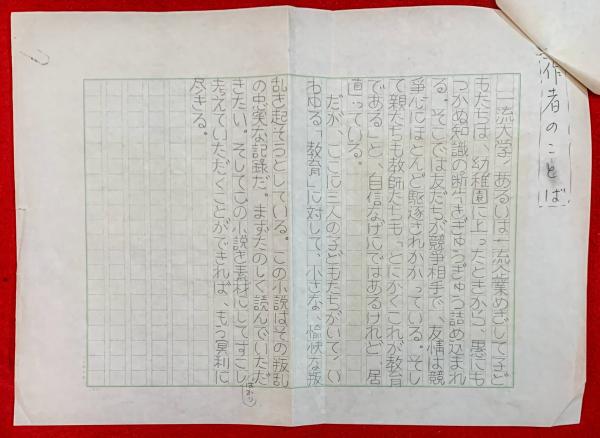 作者のことば
一流大学、あるいは一流企業めざして子ど
もたちは、幼稚園に上ったときから、愚にも
つかぬ知識の断片をぎゅうぎゅう詰め込まれ
る。そこでは友だちが競争相手で、友情は競
争心にほとんど駆逐されかかっている。そし
て親たちも教師たちも「とにかくこれが教育
である」と、自信なげにではあるけれど、居
直っている。
だが、ここに三人の子どもたちがいて、い
わゆる「教育」に対して、小さな、愉快な叛
乱を起そうとしている。この小説はその叛乱
の忠実な記録だ。まずたのしく読んでいただ
きたい。そしてこの小説を素材にしてすこし
ばかり
考えていただくことができれば、もう冥利に
尽きる。